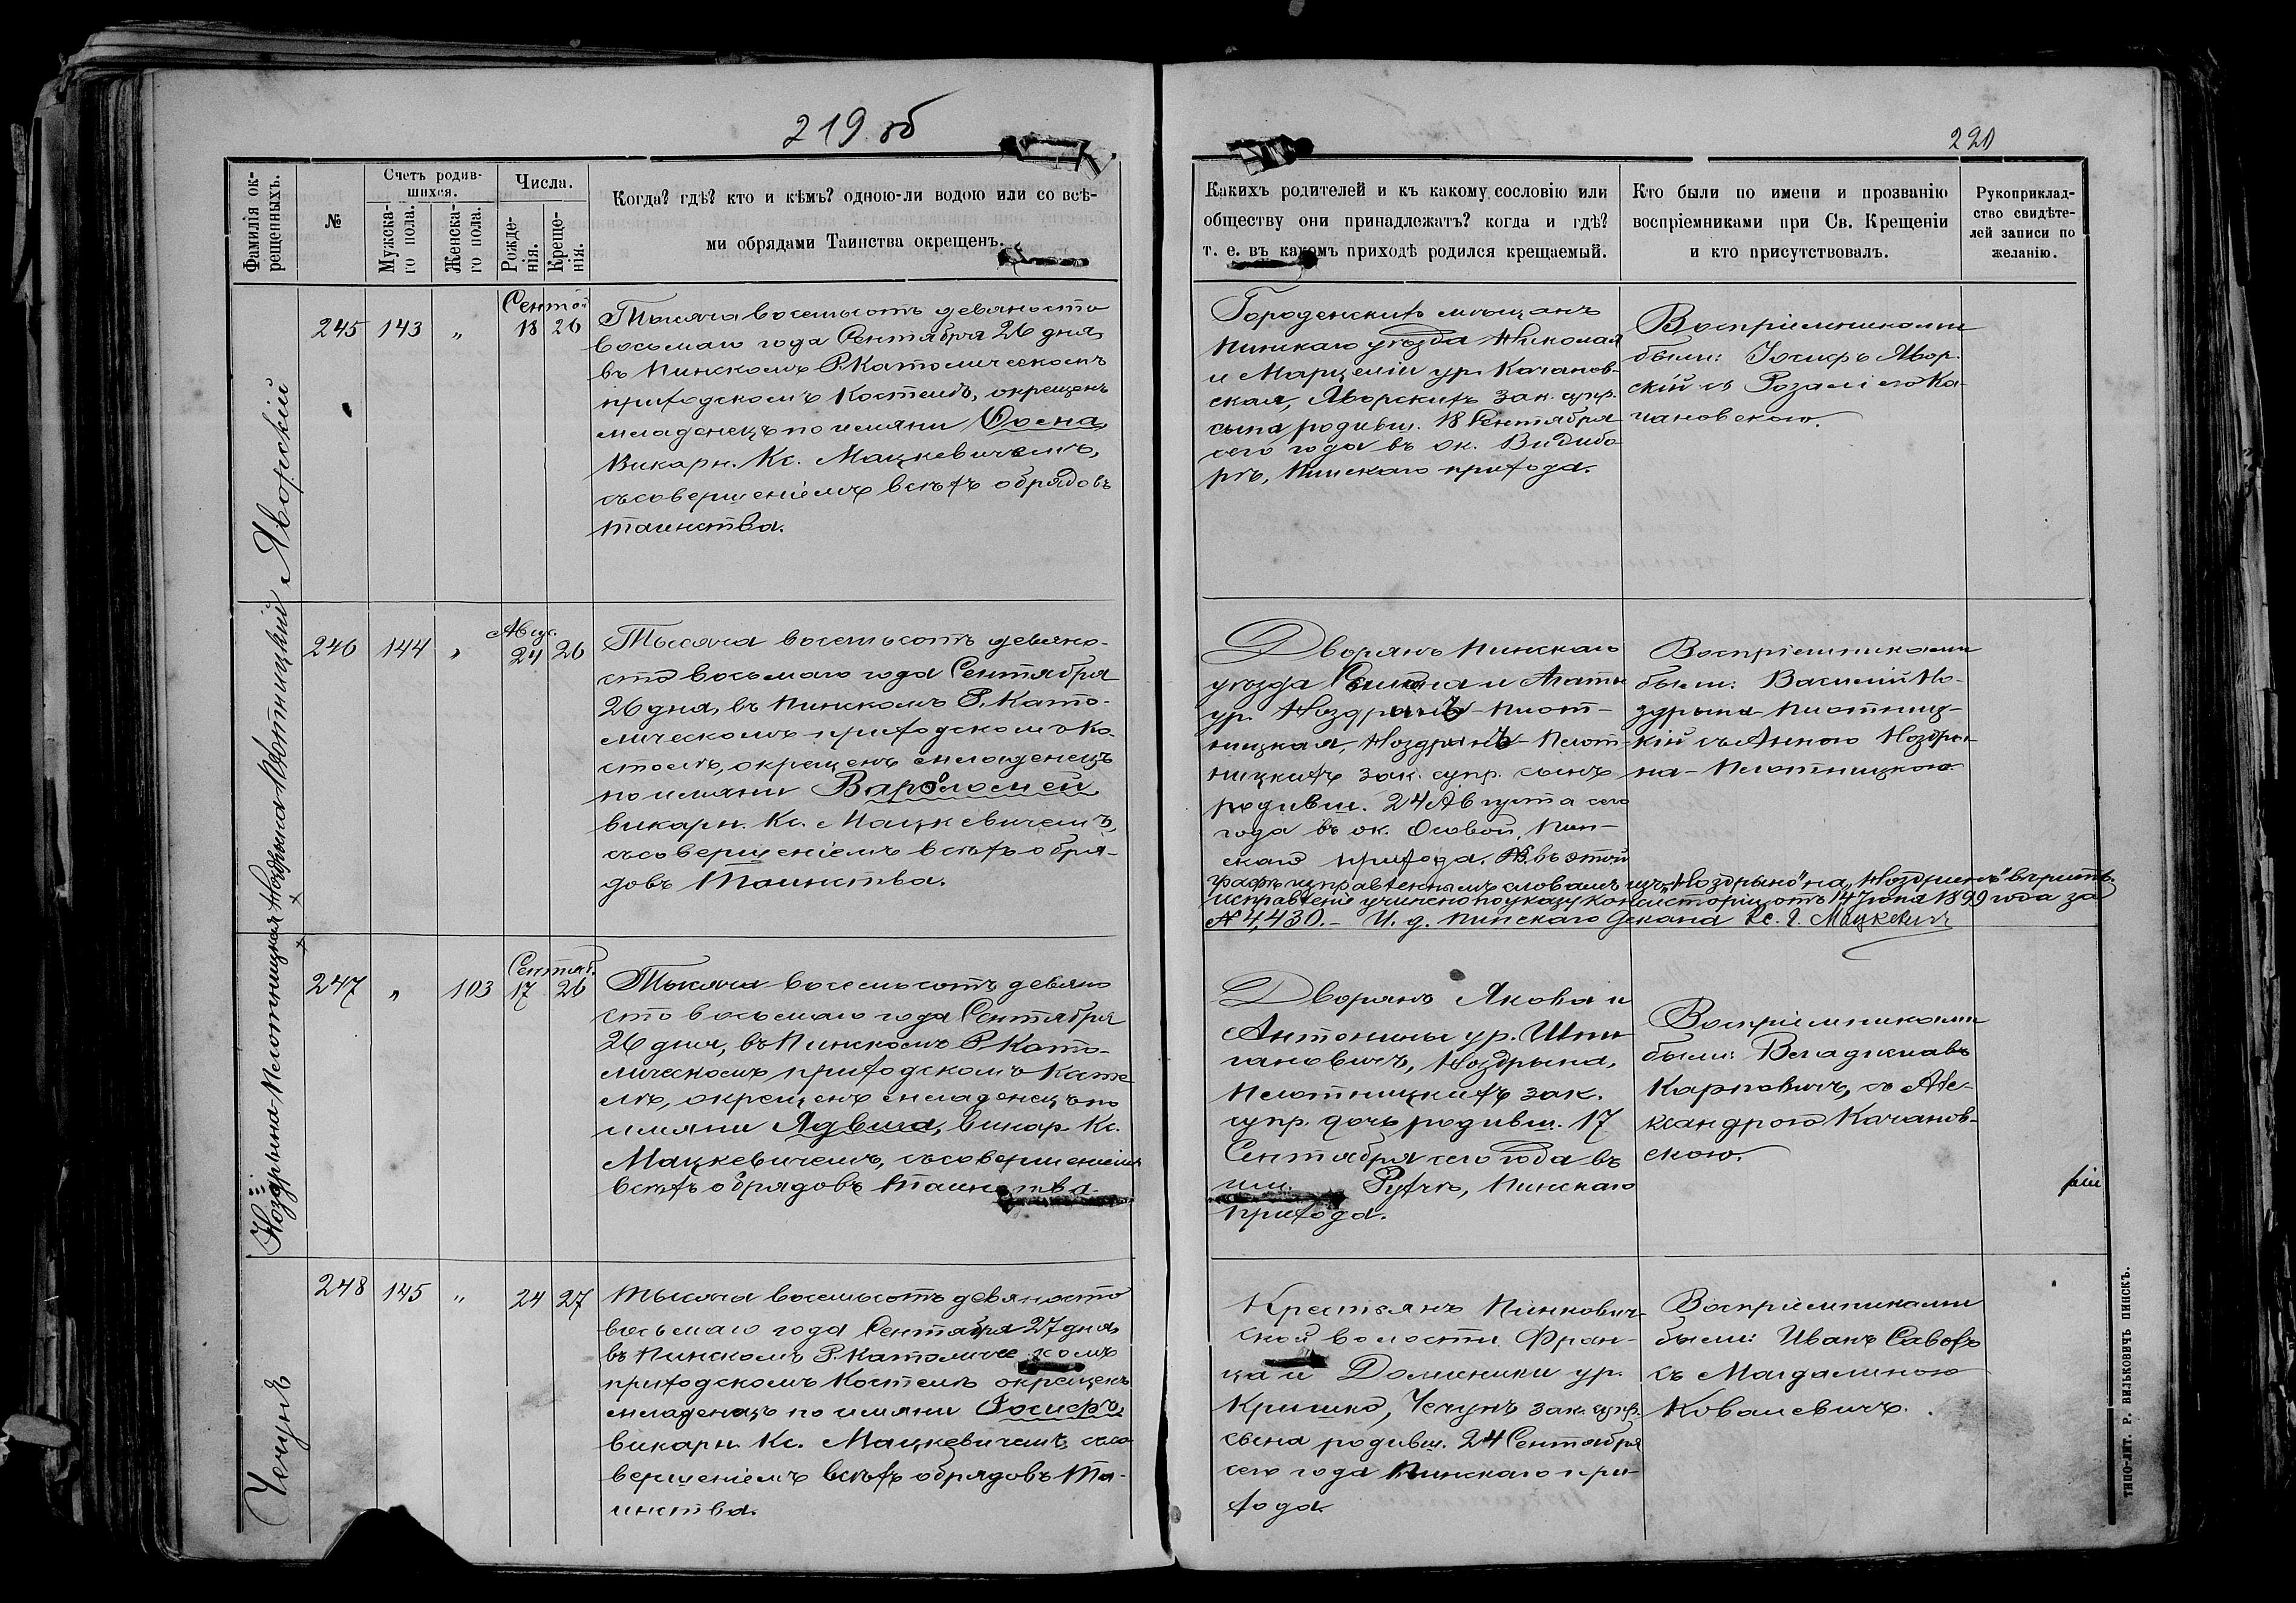 219 об
220
Фамилія ок-
рещенныхъ.
№
Счетъ родив-
шихся.
Мужска-
го пола.
Женска-
го пола.
Числа.
Рожде-
нія.
Креще-
нія.
Когда? гдѣ? кто и кѣмъ? одною-ли водою или со всѣ-
ми обрядами Таинства окрещенъ.
Какихъ родителей и къ какому сословію или
обществу они принадлежатъ? когда и гдѣ?
т. е. въ какомъ приходѣ родился крещаемый.
Кто были по имени и прозванію
воспріемниками при Св. Крещеніи
и кто присутствовалъ.
Рукоприклад-
ство свидѣте-
лей записи по
желанію.
Яворскій
245 143 „ 18 26
Тысяча восемьсотъ девяносто
восьмаго года Сентября 26 дня,
въ Пинскомъ Р. Католическомъ
приходскомъ Костелѣ, окрещенъ
младенецъ по имяни
Викарн. Кс. Мацкевичемъ,
съ совершеніемъ всѣхъ обрядовъ
таинства.
Городенскихъ мѣщанъ
Пинскаго уѣзда Николая
и Марцеліи ур. Качанов-
ская, Яворскихъ зак. супр.
сына родивш. 18 Сентября
сего года въ ок. Видибо-
рѣ, Пинскаго прихода.
Воспріемниками
были: Іосифъ Явор-
скій съ Розаліею Ка-
чановскою.
Ноздрына Плотницкій
246 144 „ Авгус. 24 26
Тысяча восемьсотъ девяно-
сто восьмаго года Сентября
26 дня, въ Пинскомъ Р. Като-
лическомъ приходскомъ Ко-
стелѣ, окрещенъ младенецъ
по имяни Варфоломей
викарн. Кс. Мацкевичемъ,
съ совершеніемъ всѣхъ обря-
довъ Таинства.
Дворянъ Пинскаго
уѣзда и Агаты
ур. Ноздринъ-Плот-
ницкая, Ноздринъ-Плот-
ницкихъ зак. супр. сынъ
родивш. 24 Августа сего
года въ ок. Особой, Пин-
скаго прихода. NB. въ этой
графѣ исправленнымъ словамъ изъ „Ноздрыно" на „Ноздринъ" вѣрить.
Исправленіе учинено по указу Консисторіи отъ 14 Іюня 1899 года за
№ 4,430. – И. д. Пинскаго Декана Кс. Мацкевичъ
Воспріемниками
были: Василій Но-
здрына-Плотниц-
кій съ Анною Ноздры-
на-Плотницкою.
Ноздрына Плотницкая
247 „ 103 Сентяб. 17 26
Тысяча восемьсотъ девяно
сто восьмаго года Сентября
26 дня, въ Пинскомъ Р. Като-
лическомъ приходскомъ Косте
лѣ, окрещенъ младенецъ по
имяни Ядвига, викар. Кс.
Мацкевичемъ, съ совершеніемъ
всѣхъ обрядовъ Таинства.
Дворянъ Якова и
Антонины ур. Шпи
гановичъ, Ноздрына,
Плотницкихъ зак.
супр. дочь родивш. 17
Сентября сего года въ
им. Рухчѣ, Пинскаго
прихода.
Воспріемниками
были: Владиславъ
Карповичъ, съ Але-
ксандрою Качанов-
скою.
Чечунъ
248 145 „ 24 27
Тысяча восемьсотъ девяносто
восьмаго года Сентября 27 дня,
въ Пинскомъ Р. Католическомъ
приходскомъ Костелѣ окрещенъ
младенецъ по имяни Іосифъ
викарн. Кс. Мацкевичемъ, съ со
вершеніемъ всѣхъ обрядовъ Та-
инства.
Крестьянъ Пинкович-
ской волости Фран-
ца и Доминики ур.
Кришко, Чечунъ зак. супр.
сына родивш. 24 Сентября
сего года Пинскаго при-
хода.
Воспріемниками
были: Иванъ Савохъ
съ Магдалиною
Ковалевичъ.
ТИПО-ЛИТ. Р. ВИЛЬКОВИЧЪ ПИНСКЪ.